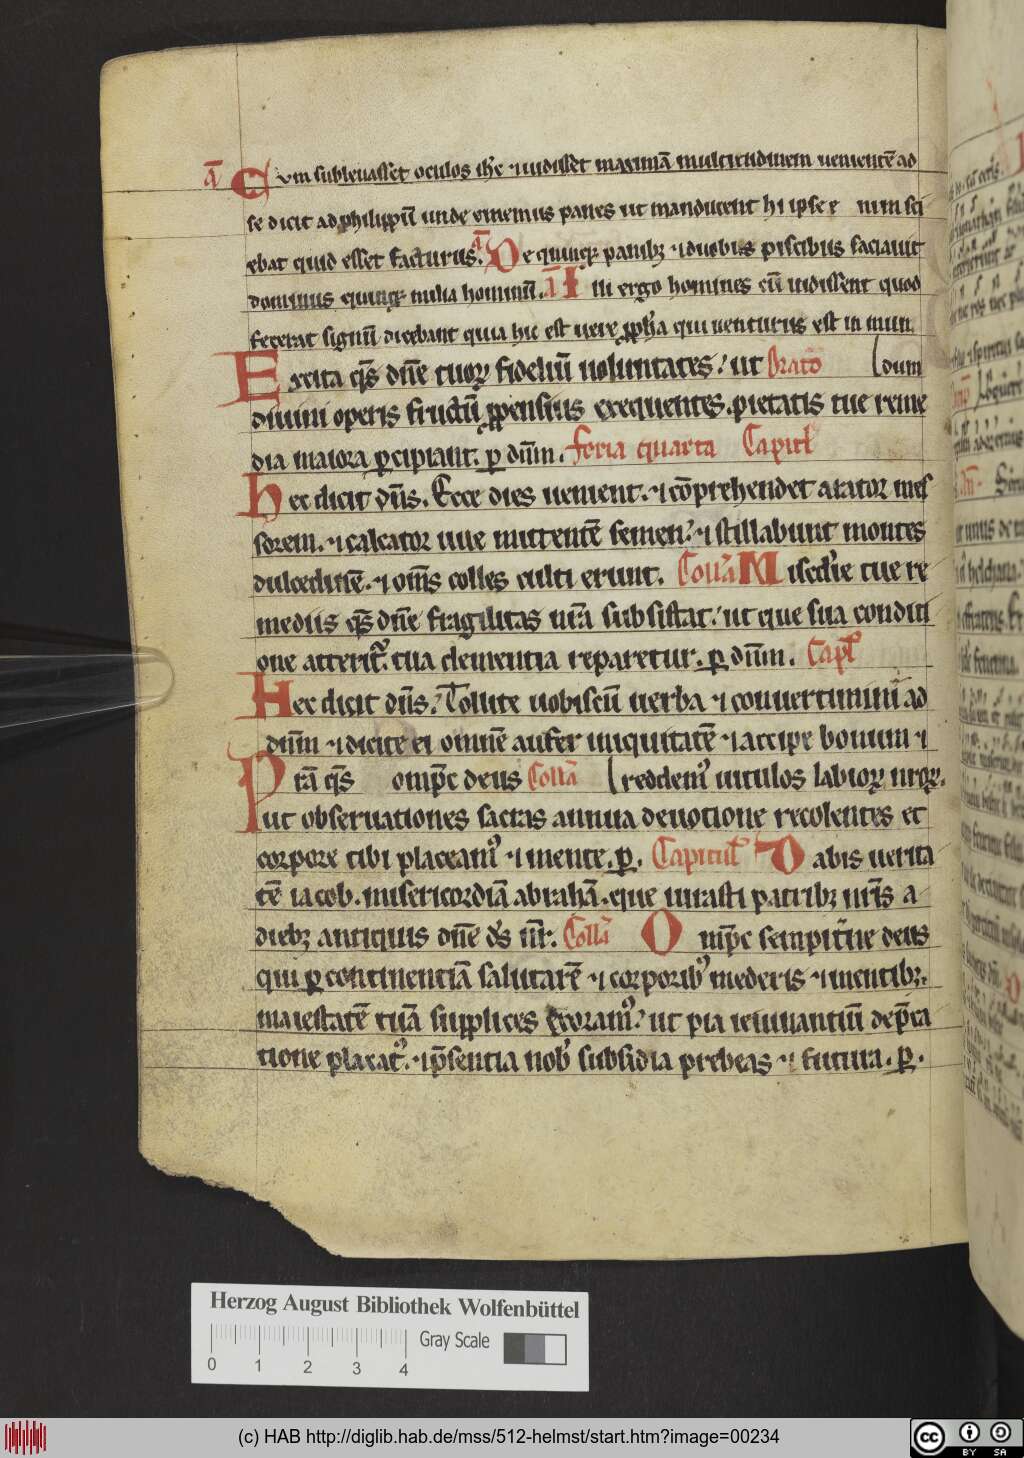 aᷓ Cum subleuasset oculos ihc̄ ⁊ uidisset maximā multitudinem uenientē ad
se dicit ad philippū unde ememus panes ut manducent hi ipse e nim sci
ebat quid esset facturus. aᷓ De quinqȝ panibȝ ⁊ duobus piscibus saciauit
dominus quinqȝ milia hominū. aᷓ Illi ergo homines cū uidissent quod
fecerat signū dicebant quia hic est uere ꝓph̄a qui uenturus est in mun
Excita qs̄ dn̄e tuoꝝ fideliū uoluntates: ut Orat̄o dum
diuini operis fructū ꝓpensius exequentes. pietatis tue reme
dia maiora ꝑcipiant. ꝑ dn̄m. feria quarta Capitl̄
Hec dicit dn̄s. Ecce dies uenient. ⁊ cōprehendet arator mes
sorem. ⁊ calcator uue mittentē semen: ⁊ stillabunt montes
dulcedinē. ⁊ om̄s colles culti erunt. Coll̄a Miscd̄ie tue re
mediis qs̄ dn̄e fragilitas nr̄a subsistat: ut que sua conditi
one atterit᷑. tua clementia reparetur. ꝑ dn̄m. Capl̄
Hec dicit dn̄s: Tollite uobiscū uerba ⁊ conuertimini ad
dn̄m ⁊ dicite ei omnē aufer iniquitatē ⁊ accipe bonum ⁊
Pr̄a qs̄ omp̄c deus Coll̄a reddemꝰ uitulos labioꝝ nr̄oꝝ.
ut obseruationes sacras annua deuotione recolentes et
corpore tibi placeamꝰ ⁊ mente. ꝑ. Capitul̄ Dabis uerita
tē iacob. misericordiā abrahā. que iurasti patribȝ nr̄is a
diebȝ antiquis dn̄e ds̄ nr̄. Coll̄a Omp̄c sempit̄ne deus
qui ꝑ continentiā salutarē ⁊ corporibꝰ mederis ⁊ mentibȝ.
maiestatē tuā supplices exoramꝰ: ut pia ieiunantiū dep̄ca
tione placatꝰ. ⁊ p̄sentia nobꝭ subsidia prebeas ⁊ futura. ꝑ.
Herzog August Bibliothek Wolfenbüttel
Gray Scale
0 1 2 3 4
(c) HAB http://diglib.hab.de/mss/512-helmst/start.htm?image=00234
cc BY SA